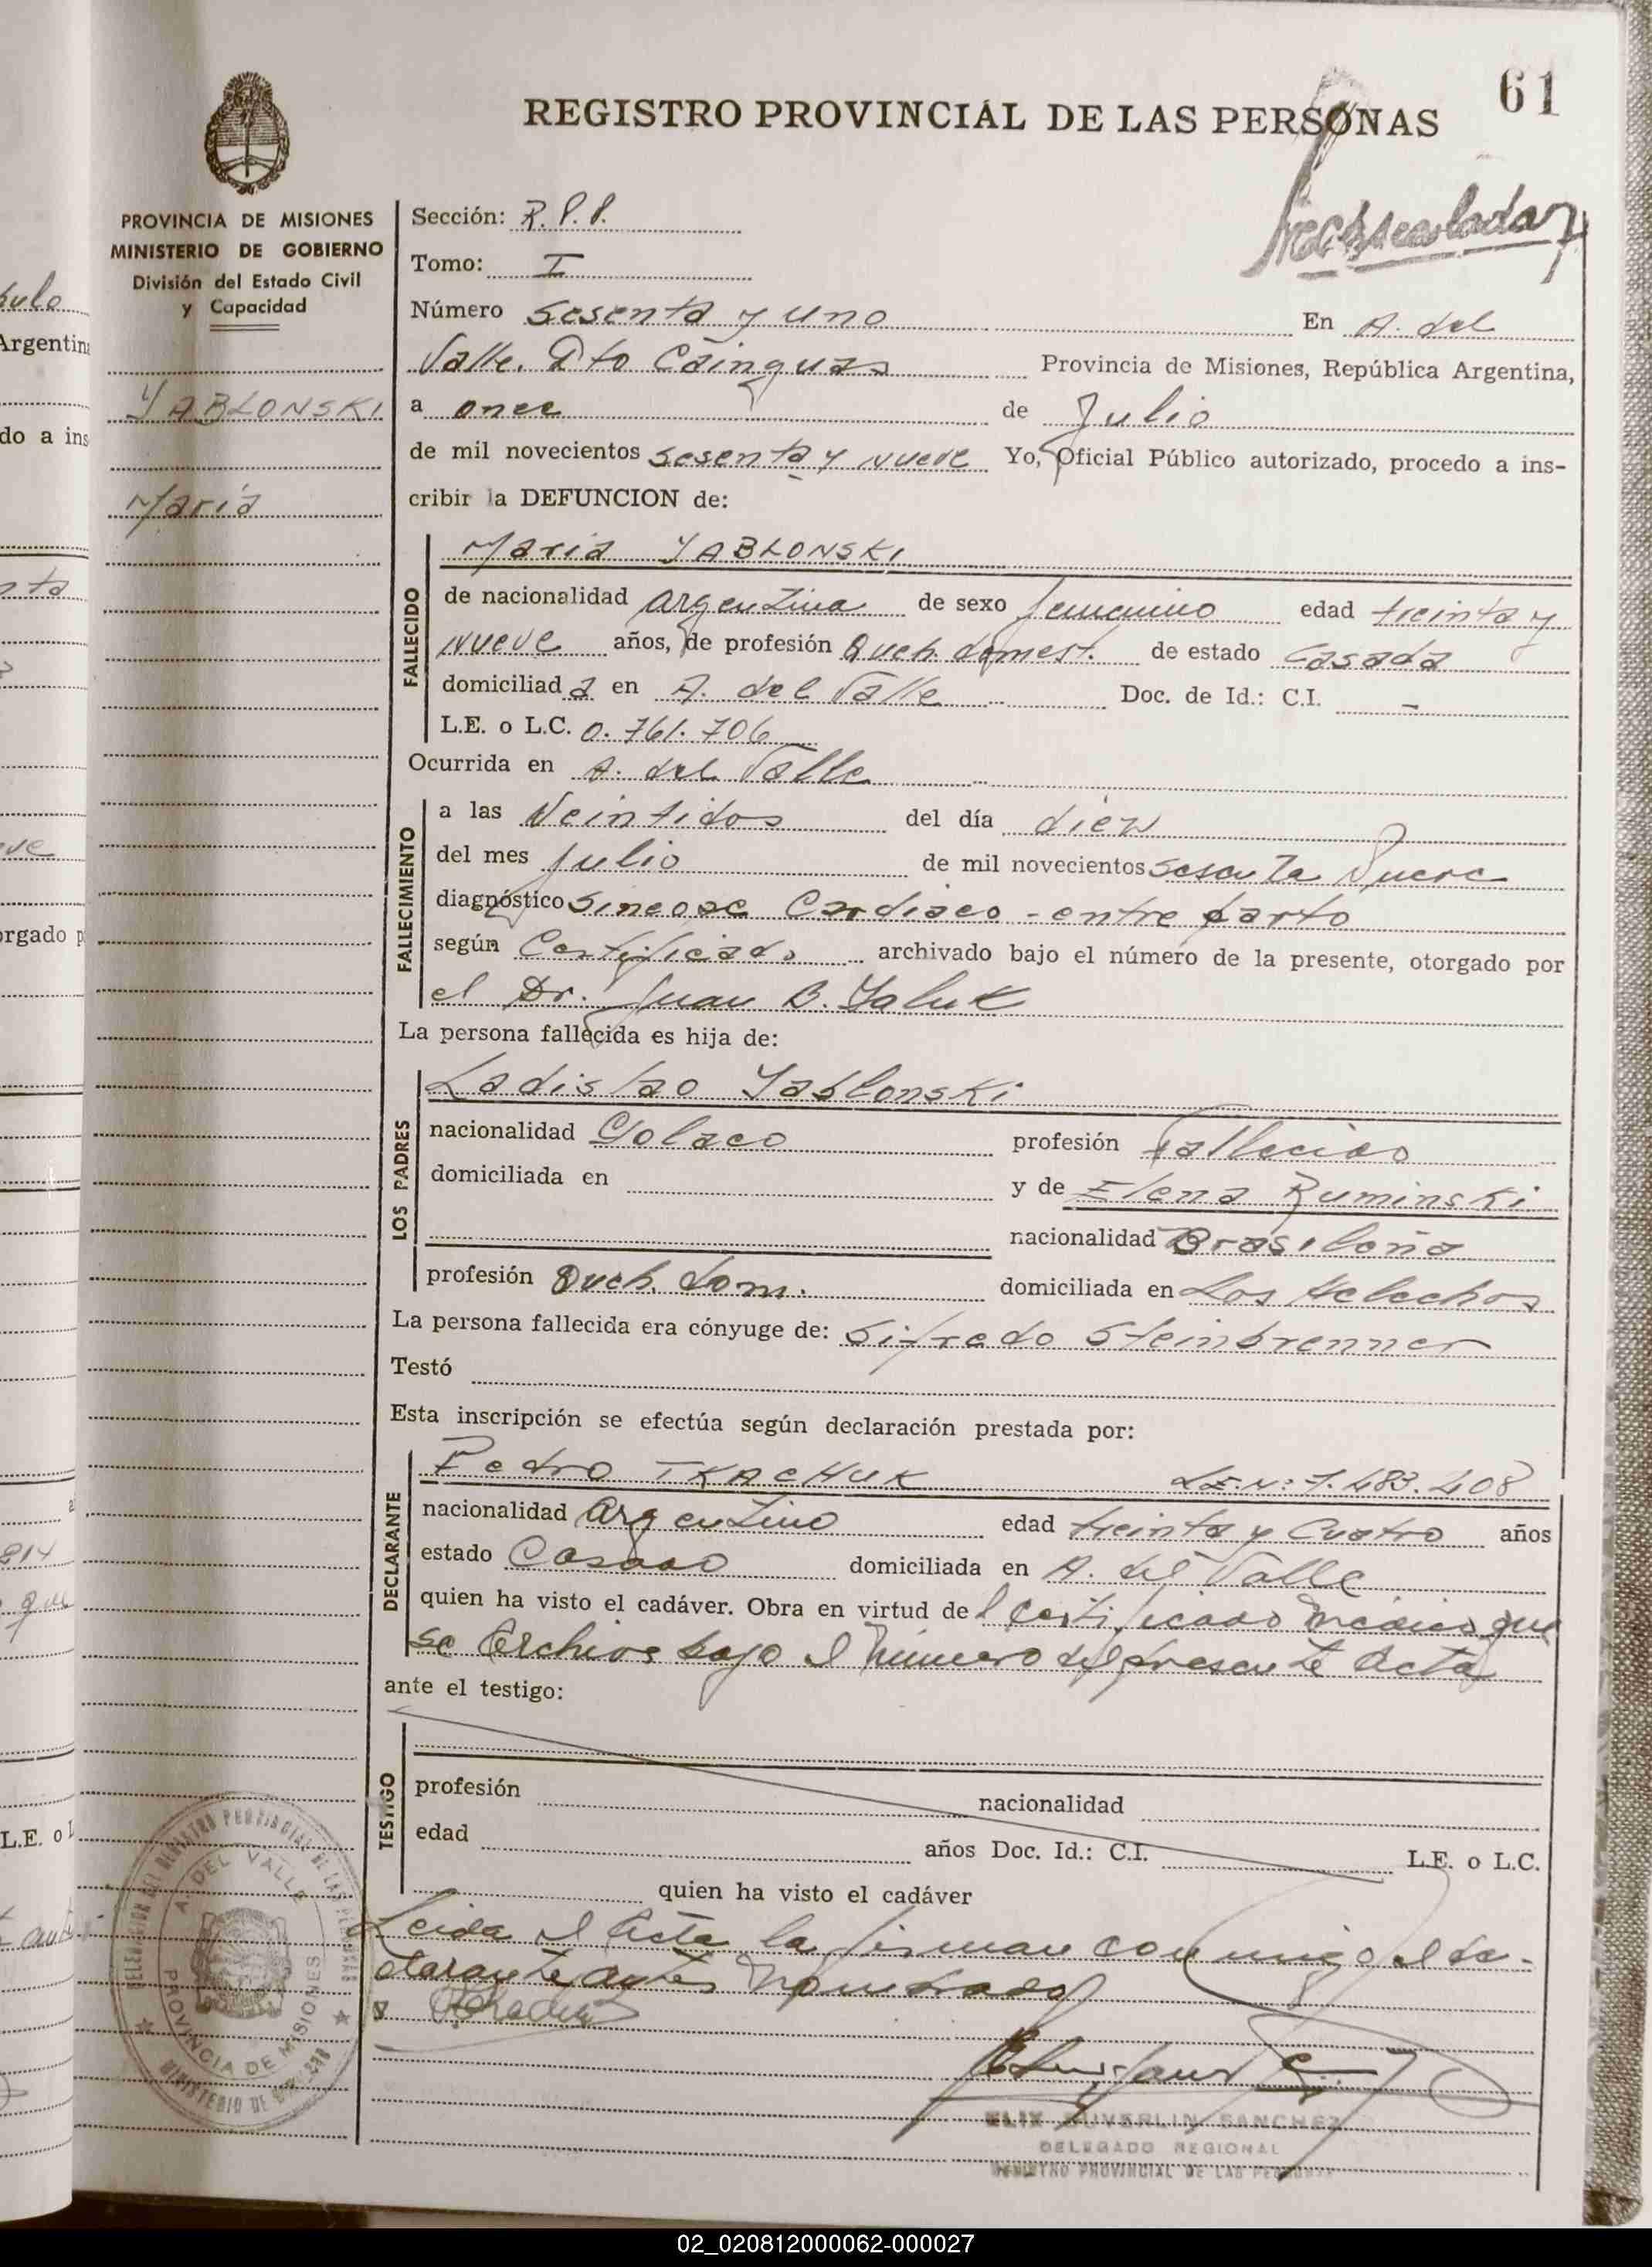 61
REGISTRO PROVINCIAL DE LAS PERSONAS
PROVINCIA DE MISIONES
MINISTERIO DE GOBIERNO
División del Estado Civil
y Capacidad
YABLONSKI
María
Sección: R. P. P.
Tomo: I
Número sesenta y uno En A. del
Valle. Dto Cainguas Provincia de Misiones, República Argentina,
a once de Julio
de mil novecientos sesenta y nueve Yo, Oficial Público autorizado, procedo a ins-
cribir la DEFUNCION de:
FALLECIDO
María YABLONSKI
de nacionalidad argentina de sexo femenino edad treinta y
nueve años, de profesión Queh. domest. de estado casada
domiciliada en A. del Valle Doc. de Id.: C.I. –
L.E. o L.C. 0.761.706
Ocurrida en A. del Valle
FALLECIMIENTO
a las Veintidos del día diez
del mes Julio de mil novecientos sesenta Nueve
diagnóstico Sincope Cardiaco - entre parto
según Certificado archivado bajo el número de la presente, otorgado por
el Dr. Juan B. Yaluk
La persona fallecida es hija de:
LOS PADRES
Ladislao Yablonski
nacionalidad Polaco profesión Fallecido
domiciliada en y de Elena Ruminski
nacionalidad Brasileña
profesión Queh. Dom. domiciliada en Los Helechos
La persona fallecida era cónyuge de: Sifredo Steinbrenner
Testó
Esta inscripción se efectúa según declaración prestada por:
DECLARANTE
Pedro TKACHUK L.E.N: 7.483.408
nacionalidad argentino edad treinta y Cuatro años
estado Casado domiciliada en A. del Valle
quien ha visto el cadáver. Obra en virtud del Certificado médico que
se Archiva bajo el Número del presente acta
ante el testigo:
TESTIGO
profesión nacionalidad
edad años Doc. Id.: C.I. L.E. o L.C.
quien ha visto el cadáver
Leida el Acta la firman conmigo el de-
clarante antes Nombrado
DELEGACION DEL REGISTRO PROVINCIAL DE LAS PERSONAS
A. DEL VALLE
PROVINCIA DE MISIONES
MINISTERIO DE GOBIERNO
SANCHEZ
DELEGADO REGIONAL
REGISTRO PROVINCIAL DE LAS PERSONAS
02_020812000062-000027